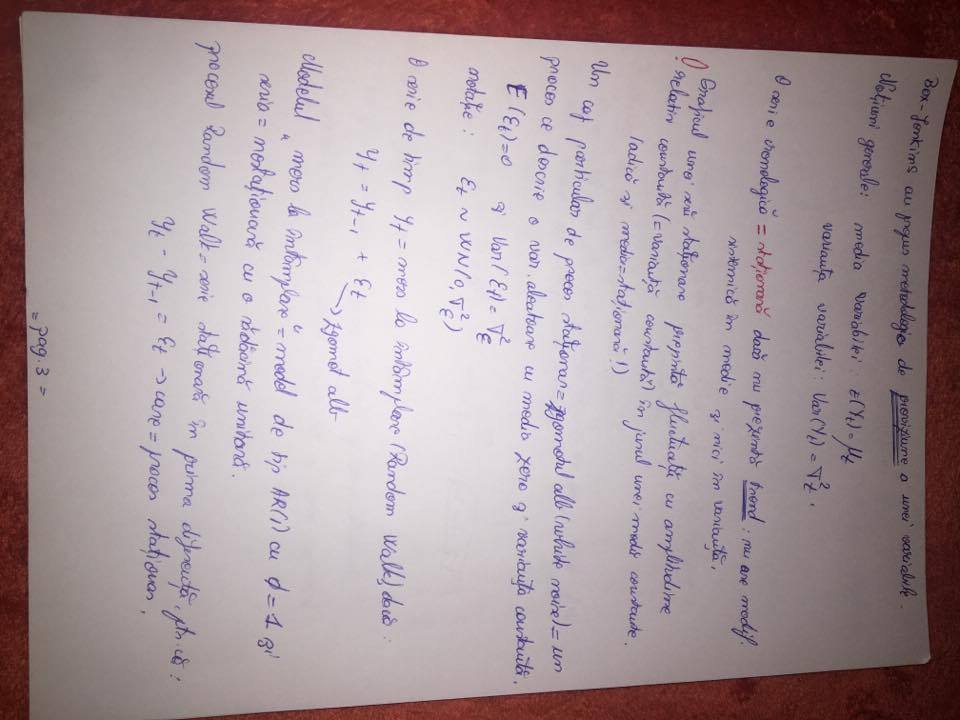 Box-Jenkins au propus metodologia de previziune a unei variabile.
Noțiuni generale: media variabilei: E(Yt) = μt
varianța variabilei: Var(Yt) = σ²t.
O serie cronologică = staționară dacă nu prezintă trend: nu are modif.
sistemică în medie și nici în varianță.
!) Graficul unei serii staționare prezintă fluctuații cu amplitudine
relativ constantă (= varianță constantă) în jurul unei medii constante.
(adică și medie = staționară!)
Un caz particular de proces staționar = zgomotul alb (white noise) = un
proces ce descrie o var. aleatoare cu media zero și varianța constantă.
E(εt) = 0 și Var(εt) = σ²ε
notație: εt ~ WN(0, σ²ε)
O serie de timp yt = mers la întâmplare (Random Walk) dacă:
yt = yt-1 + εt
→ zgomot alb
Modelul "mers la întâmplare" = model de tip AR(1) cu d = 1 și
serie = nestaționară cu o rădăcină unitară.
procesul Random Walk = serie staționară în prima diferență, ptr. că:
yt - yt-1 = εt → care = proces staționar.
= pag. 3 =